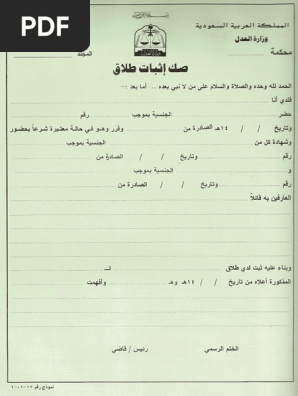 PDF
المملكة العربية السعودية
وزارة العدل
محكمة
المجلد
صك إثبات طلاق
الحمد لله وحده والصلاة والسلام على من لا نبي بعده .. أما بعد :-
فلدي أنا
حضر الجنسية بموجب رقم
وتاريخ / / ١٤هـ الصادرة من وقرر وهو في حالة معتبرة شرعاً بحضور
وشهادة كل من الجنسية بموجب
رقم وتاريخ / / الصادرة من
و الجنسية بموجب
رقم وتاريخ / / الصادرة من
العارفين به قائلاً
وبناء عليه ثبت لدي طلاق لـ
المذكورة أعلاه من تاريخ / / ١٤هـ وأفهمت
الختم الرسمي رئيس / قاضي